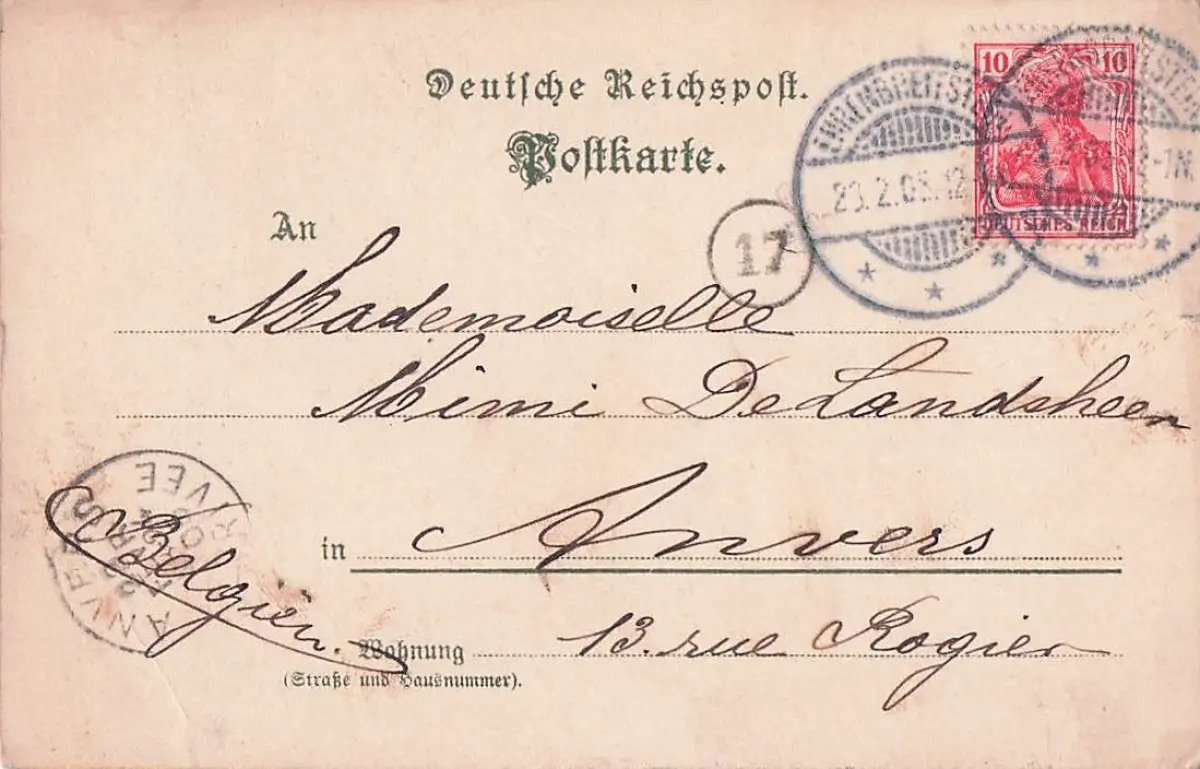 Deutsche Reichspost.
Postkarte.
10 10
DEUTSCHES REICH
EHRENBREITSTEIN
23.2.05.12
An
17
Mademoiselle
Mimi De Landsheer
in Anvers
Belgien.
ANVERS
Wohnung 13. rue Rogier
(Straße und Hausnummer).